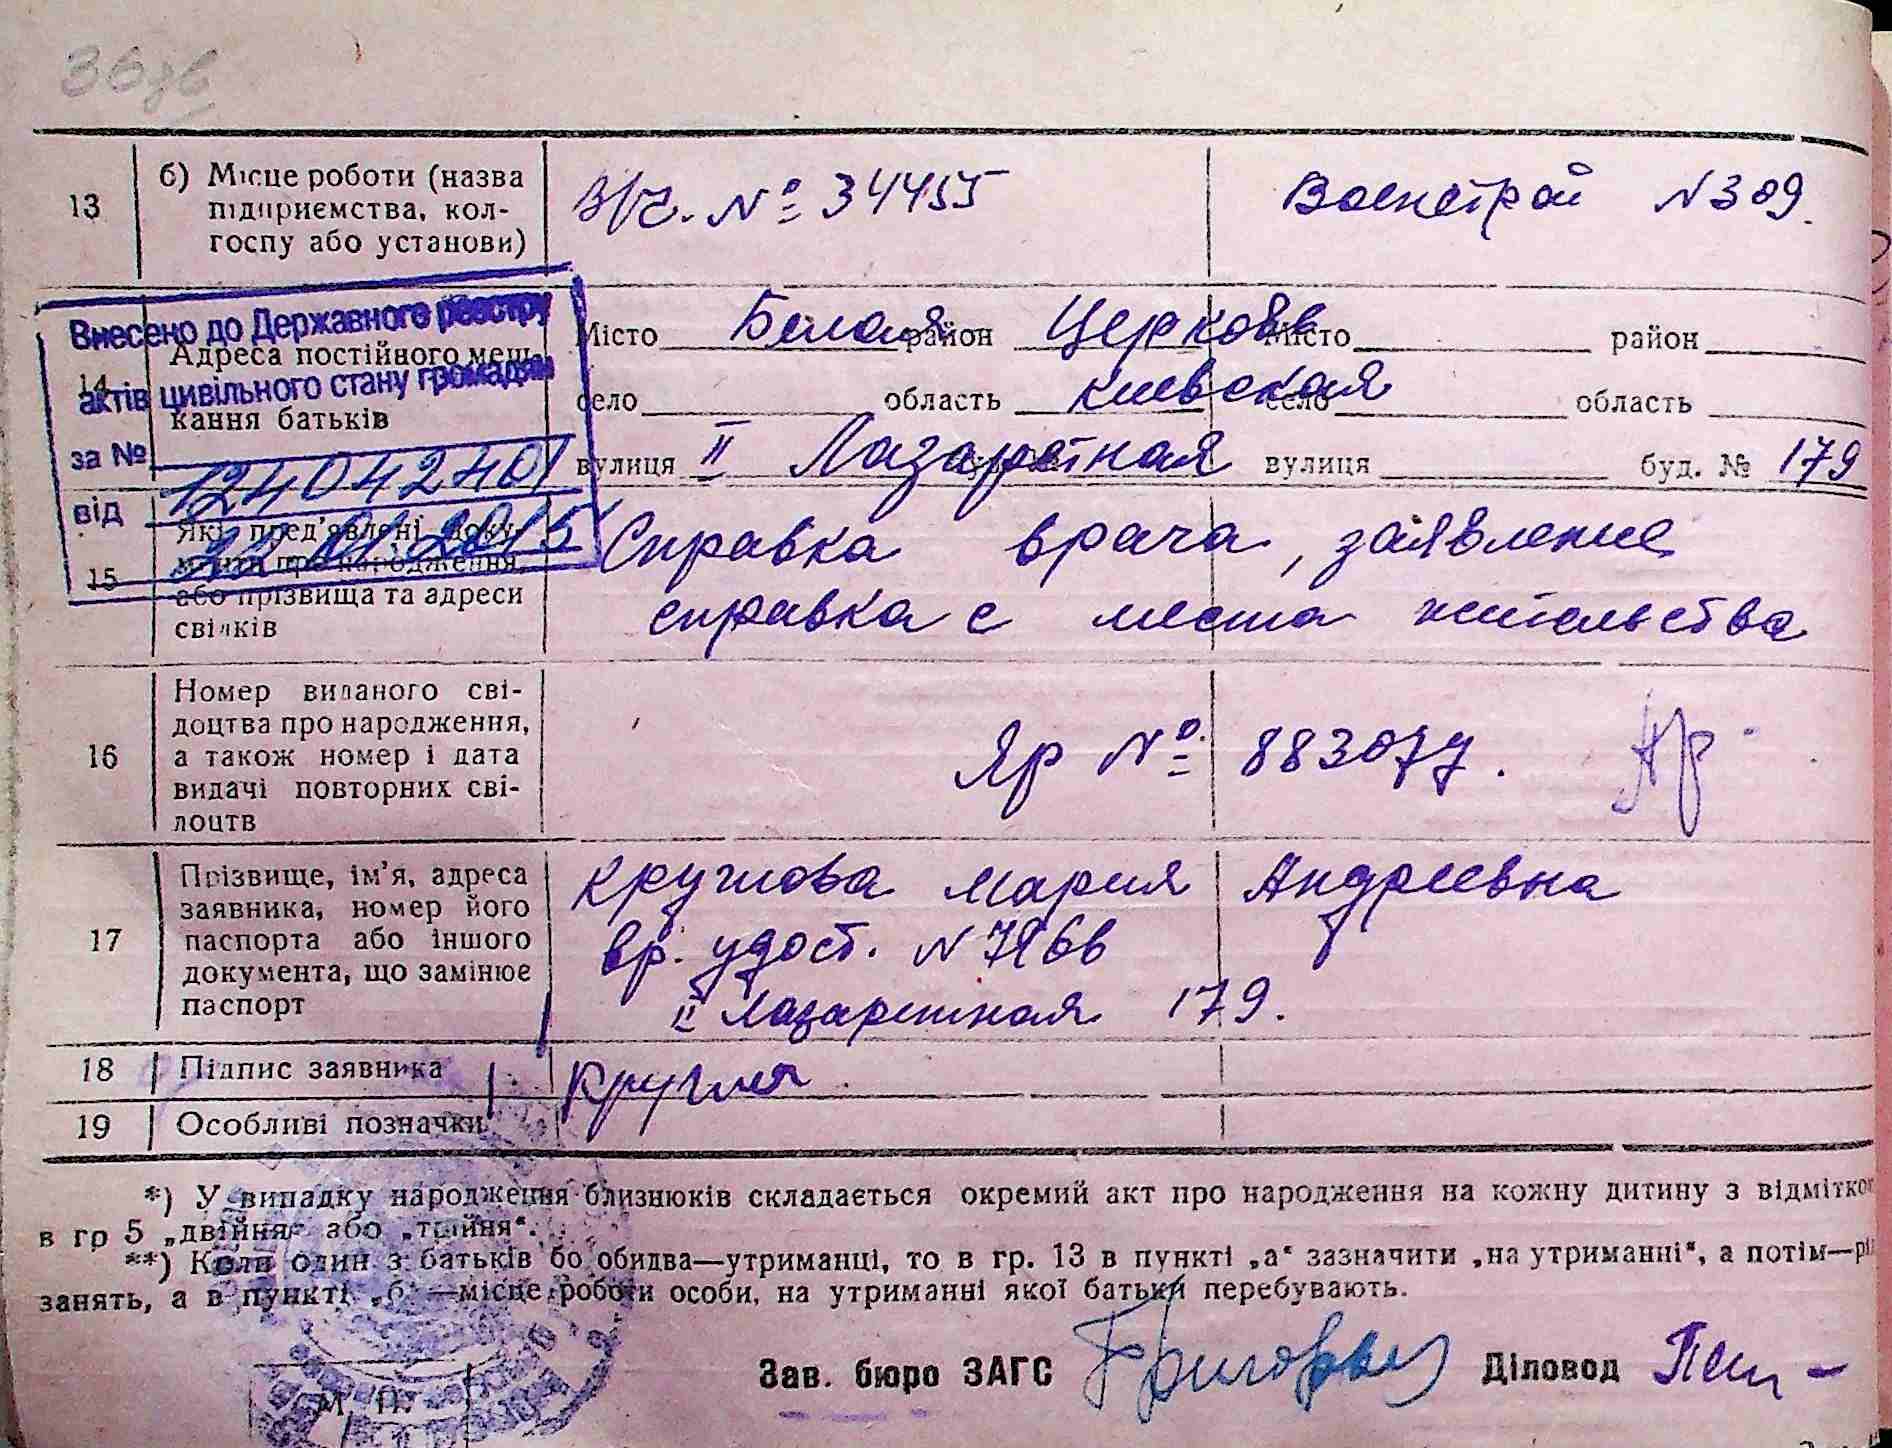 36зв
13 б) Місце роботи (назва підприємства, колгоспу або установи)
В/ч. № 34455 Военстрой N 309.
Внесено до Державного реєстру
актів цивільного стану громадян
за № 124042401
від 22.01.2015
14 Адреса постійного мешкання батьків
Місто Белая район Церковь Місто район
село область киевская село область
вулиця II Лазаретная вулиця буд. № 179
15 Які пред'явлені документи про народження, або прізвища та адреси свідків
Справка врача, заявление
справка с места жительства
16 Номер виданого сві-
доцтва про народження,
а також номер і дата
видачі повторних сві-
доцтв
Яр № 883077.
17 Прізвище, ім'я, адреса
заявника, номер його
паспорта або іншого
документа, що замінює
паспорт
Круглова Мария Андреевна
вр. удост. N
II Лазаретная 179.
18 Підпис заявника
19 Особливі позначки
*) У випадку народження близнюків складається окремий акт про народження на кожну дитину з відмітко
в гр 5 „двійня“ або „трійня“.
**) Коли один з батьків бо обидва—утриманці, то в гр. 13 в пункті „а“ зазначити „на утриманні“, а потім—рі
занять, а в пункті „б“—місце роботи особи, на утриманні якої батьки перебувають.
Зав. бюро ЗАГС Діловод
М. П.